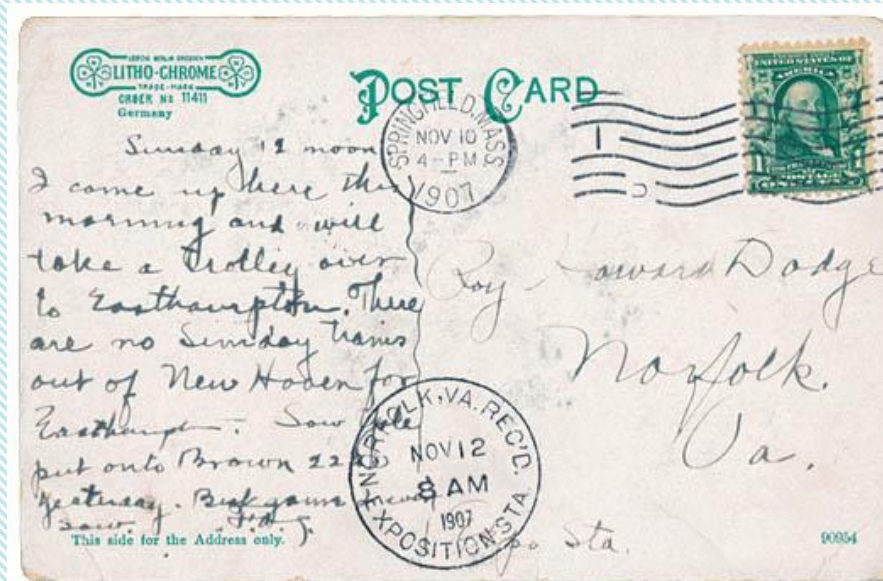 LEIPZIG BERLIN DRESDEN
LITHO-CHROME
TRADE-MARK
ORDER No 11411
Germany
POST CARD
SPRINGFIELD, MASS.
NOV 10
4-PM
1907
UNITED STATES OF
AMERICA
1
POSTAGE
Sunday 12 noon
I came up here this
morning and will
take a trolley over
to Easthampton. There
are no Sunday trains
out of New Haven for
Easthampt. Saw Yale
put onto Brown 22
yesterday. Best game I ever
saw.
Roy Howard Dodge
Norfolk.
Va.
Expo Sta.
NORFOLK, VA. REC'D.
NOV 12
8 AM
1907
EXPOSITION STA.
This side for the Address only.
90954